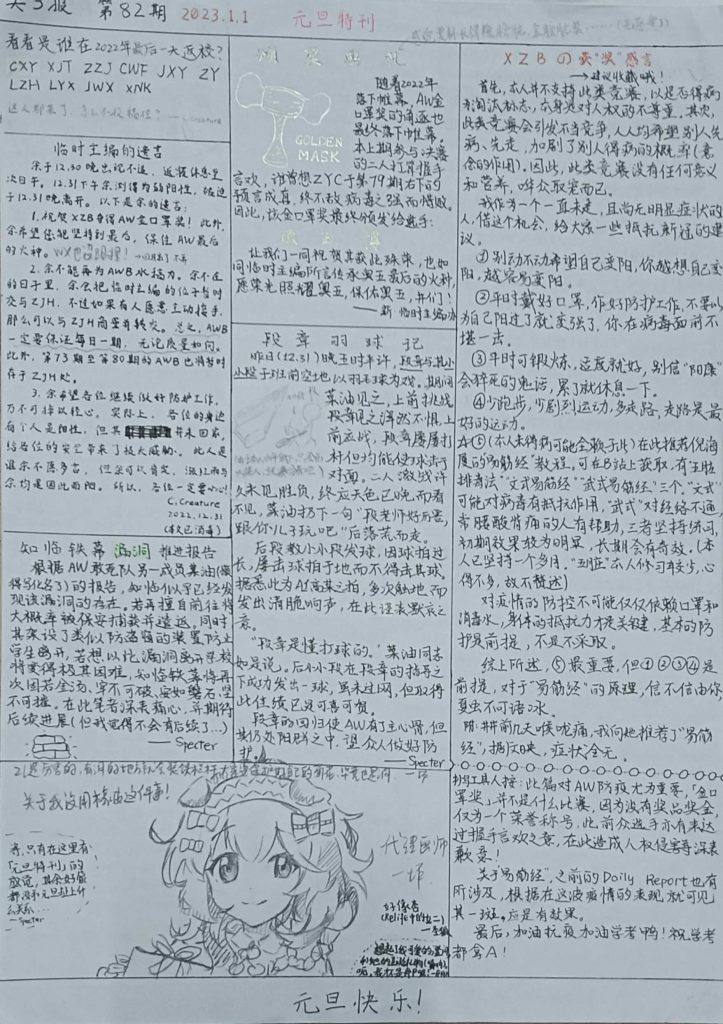 第82期 2023.1.1 元旦特刊
看看是谁在2022年最后一天返校?
CXY XJT ZZJ CWF JXY ZY
LZH LYX JWX XNK
—C.Creature
临时主编的遗言
余于12.30晚出现不适,返寝休息至
次日午。12.31下午余测得为弱阳性,被迫
于12.31晚离开。以下是余的遗言:
1.祝贺XZB夺得AW金口罩奖!此外,
余希望您能坚持到最后,保住AW最后
的火种。
2.余不能再为AWB水稿力。余不在
的日子里,余会把临时主编的位子暂时
交与ZJH,不过如果有人愿意主动接手,
那么可以与ZJH商量再转交。总之,AWB
一定要保证每日一期,无论质量如何。
此外,第73期至第80期的AWB也将暂时
存于ZJH处。
3.余希望各位继续做好防护工作,
万不可掉以轻心。实际上,各位的身边
有个人是阳性,但其
并未回家,
给各位的安全带来了极大威胁。此人是
谁余不愿多言,
所以,各位一定要小心!
C.Creature
2022.12.31
(本文已消毒)
知临铁幕漏洞推进报告
根据AW敢死队另一成员某油
的报告,知临似乎已经发
现该漏洞的存在。若再擅自前往将
大概率被保安捕获并遣返,同时
其架设了类似防盗窗的装置防止
学生离开,若想以此漏洞离开学校
将变得极其困难,知临铁幕将再
次固若金汤,牢不可破,安如磐石坚
不可摧,在此笔者深表痛心,并期待
后续进展(但我觉得不会有后续了…)
—Specter
GOLDEN
MASK
随着2022年
落下帷幕,AW金
口罩奖的角逐也
最终落下帷幕。
本上期参与决赛
的二人打算握手
言欢,谁曾想ZYC于第79期右下的
预言成真,终不敌病毒之强而惜败。
因此,该金口罩奖最终颁发给选手:
让我们一同祝贺其获此殊荣,也如
同临时主编所言传承奥五最后的火种,
愿荣光照耀奥五,保佑奥五,弁们!
—新临时主编
段章羽球记
昨日(12.31)晚五时半许,段章与其小
小段于班前空地以羽毛球为戏。期间
某油见之,上前挑战
段章见之浑然不惧,上
前应战,段章屡屡打
材但均能使球击于
对面。二人激战许
久未见胜负,终应天色已晚而看
不见,某油扔下一句“段老师好厉害,
跟你儿子玩吧”后落荒而走。
后段教小小段发球,因球拍过
长,屡击球拍于地而不得击其球。
据悉此为A1高某之拍,多次触地,而
发出清脆响声,在此谨表默哀之
意。
“段章是懂打球的。”某油同志
如是说。后小小段在段章的指导之
下成功发出一球,虽未过网,但取得
此佳绩已逞喜可贺。
段章的回归使AW有了主心骨,但
其仍处阳群之中,望众人做好防
护。
—Specter
XZBの获“奖”感言
→建议收藏哦!
首先,本人并不支持此类竞赛,以是否得病
为淘汰标志,本身是对人权的不尊重。其次,
此类竞赛会引发不当竞争,人人均希望别人先
病、先走,加剧了别人得病的概率(意
念的作用)。因此,此类竞赛没有任何意义
和营养,哗众取宠而已。
我作为一个一直未走,且尚无明显症状的
人,借这个机会,给大家一些抵抗新冠的建
议。
①别动不动希望自己变阳,你越想自己变
阳,越容易变阳。
②平时戴好口罩,作好防护工作,不要以
为自己阳过了就变强了,你在病毒面前不
堪一击。
③平时可锻炼,适度就好,别信“阳康”
会猝死的鬼话,累了就休息一下。
④少跑步,少剧烈运动,多走路,走路是最
好的运动。
⑤(本人未得病可能全赖于此)在此推荐倪海
厦的“易筋经”教程,可在B站上获取,有五脏
排毒法”“文式易筋经”“武式易筋经”三个。“文式”
可能对病毒有抵抗作用,“武式”对经络不通,
常腰酸背痛的人有帮助,三者坚持练习,
初期效果较为明显,长期会有奇效。(本
人已坚持一个多月,“五脏”本人修习较少,心
得不多,故不赘述)
对疫情的防控不可能仅仅依赖口罩和
消毒水,身体的抵抗力才是关键,基本的防
护是前提,不是不采取。
综上所述,⑤最重要,但①②③④是
前提,对于“易筋经”的原理,信不信由你,
夏虫不可语冰。
附:井前几天喉咙痛,我向他推荐了“易筋
经”,据反映,症状全无。
抄写工具人按:此篇对AW防疫尤为重要,「金口
罩奖」并不是什么比赛,因为没有奖品奖金,
仅为一个荣誉称号,此前众选手亦有表达
过握手言欢之意,在此造成人权侵害再深表
歉意!
关于“易筋经”,之前的Daily Report也有
所涉及,根据在这波疫情的表现就可见
其一斑。应是有效果。
最后,加油抗疫加油学考鸭!祝学考
都拿A!
关于我没用橡皮这件事!
代理画师
一作
奇,只有在这里有
「元旦特刊」的
感觉,其余好像
都没和元旦扯上什
么关系…
—Specter
元旦快乐!